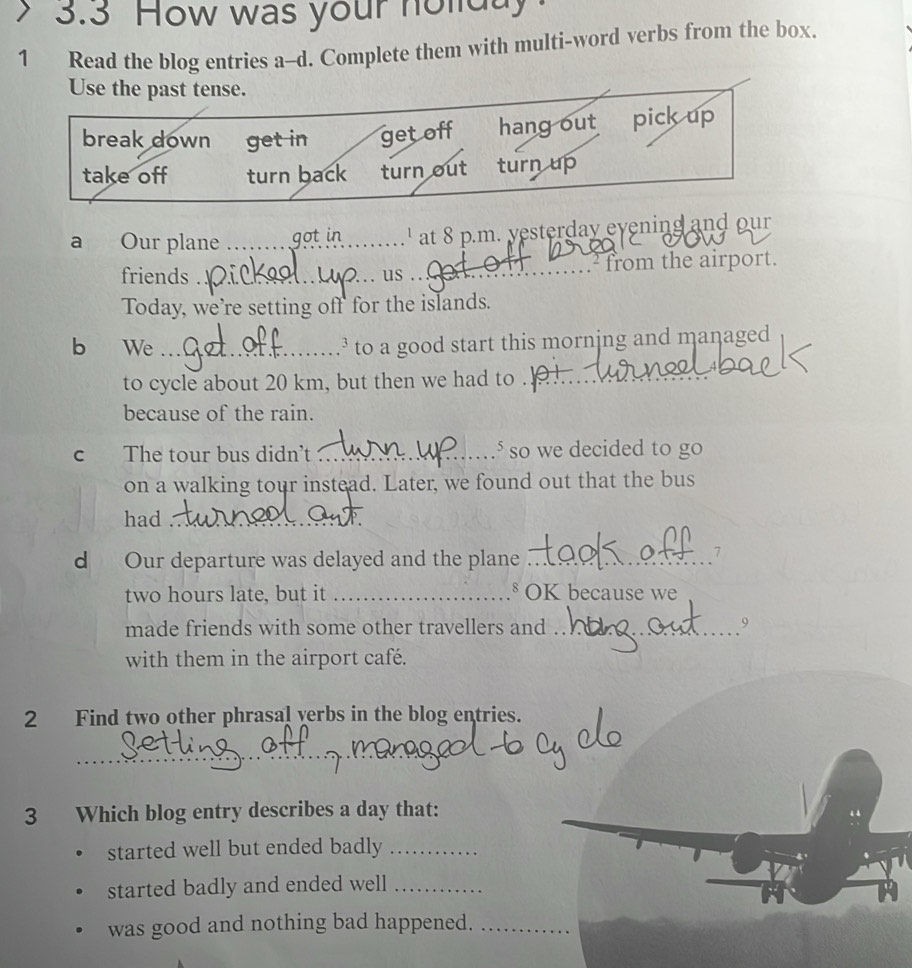 3.3 How was your holiday?
1 Read the blog entries a–d. Complete them with multi-word verbs from the box.
Use the past tense.
break down get in get off hang out pick up
take off turn back turn out turn up
a Our plane ........got in..........¹ at 8 p.m. yesterday evening and our
break dow
friends ..picked up... us ..get off..........² from the airport.
Today, we're setting off for the islands.
b We ...get off........³ to a good start this morning and managed
to cycle about 20 km, but then we had to . turned back
because of the rain.
c The tour bus didn't ..turn up......⁵ so we decided to go
on a walking tour instead. Later, we found out that the bus
had ..turned out.
d Our departure was delayed and the plane ..took off..⁷
two hours late, but it ..........................⁸ OK because we
made friends with some other travellers and ..hang out.....⁹
with them in the airport café.
2 Find two other phrasal verbs in the blog entries.
Setting off, managed to cycle
3 Which blog entry describes a day that:
• started well but ended badly ............
• started badly and ended well ............
• was good and nothing bad happened. ............